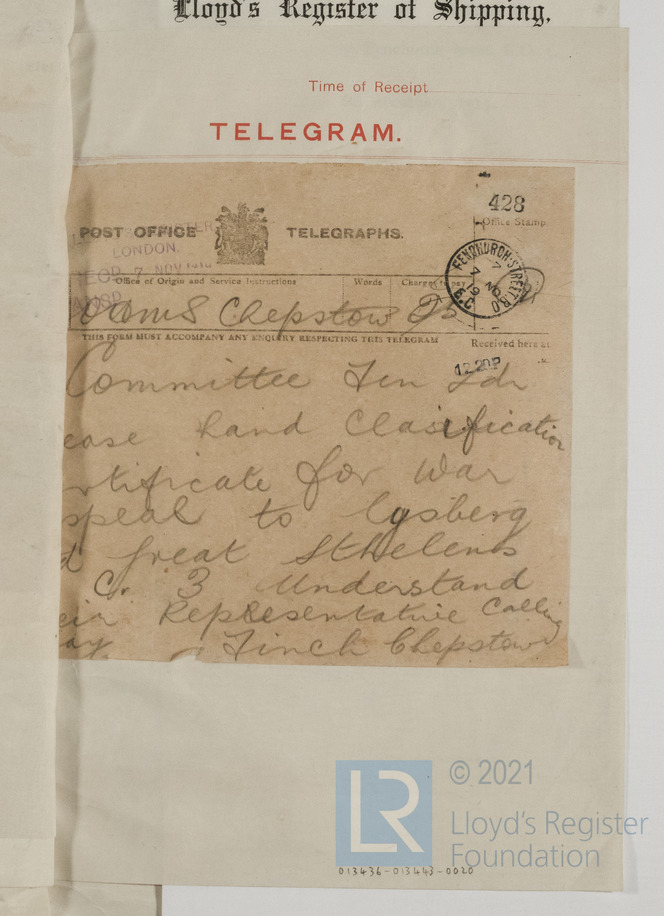 Lloyd's Register of Shipping,
Time of Receipt
TELEGRAM.
428
Office Stamp.
POST OFFICE TELEGRAPHS.
LONDON.
7 NOV
FENCHURCH STREET B.O.
E.C
7 NO
19
Office of Origin and Service Instructions
Words
Charges to pay
Chepstow
THIS FORM MUST ACCOMPANY ANY ENQUIRY RESPECTING THIS TELEGRAM
Received here at
12.20P
Committee Fen Ldn
ease hand Classification
rtificate for War
speal to
Great Sthelens
C. 3 Understand
eir Representative Calling
ay Finch Chepstow
LR
© 2021
Lloyd's Register
Foundation
013436-013443-0020